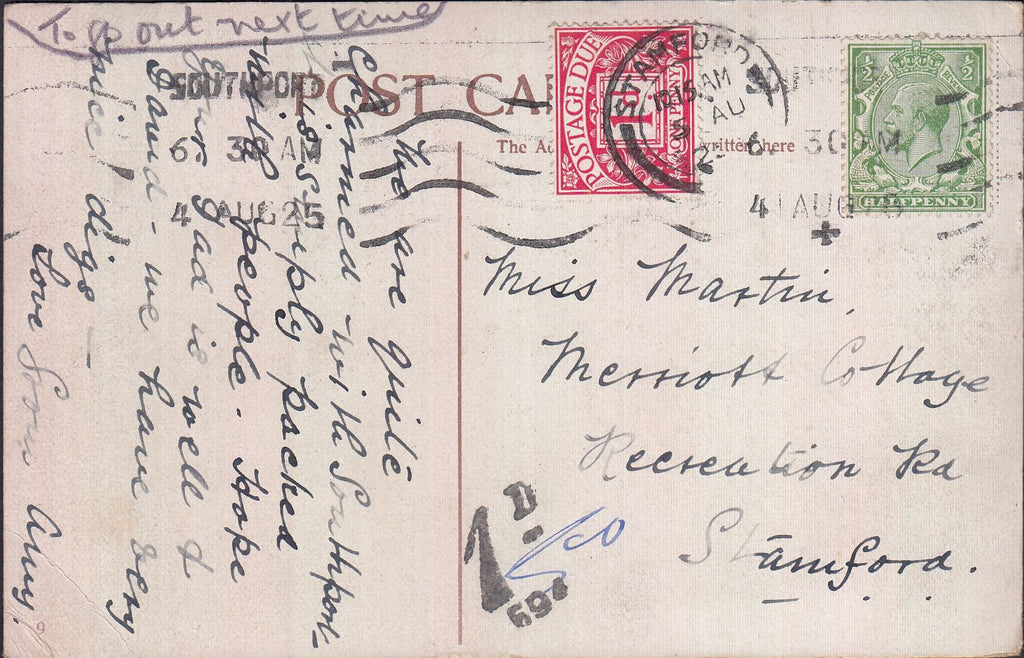 To go out next time
POST CA
The Ad written here
POSTAGE DUE
1D
STAMFORD
10 15 AM
5 AU
2
½ ½
HALFPENNY
SOUTHPORT
6. 30 AM
4 AUG 25
6. 30 AM
4 AUG
We are quite
charmed with Southport
it is simply packed
with people. Hope
your Dad is well &
David - we have very
nice digs —
Love from Amy.
Miss Martin
Merriott Cottage
Recreation Rd
Stamford.
1D.
694
9